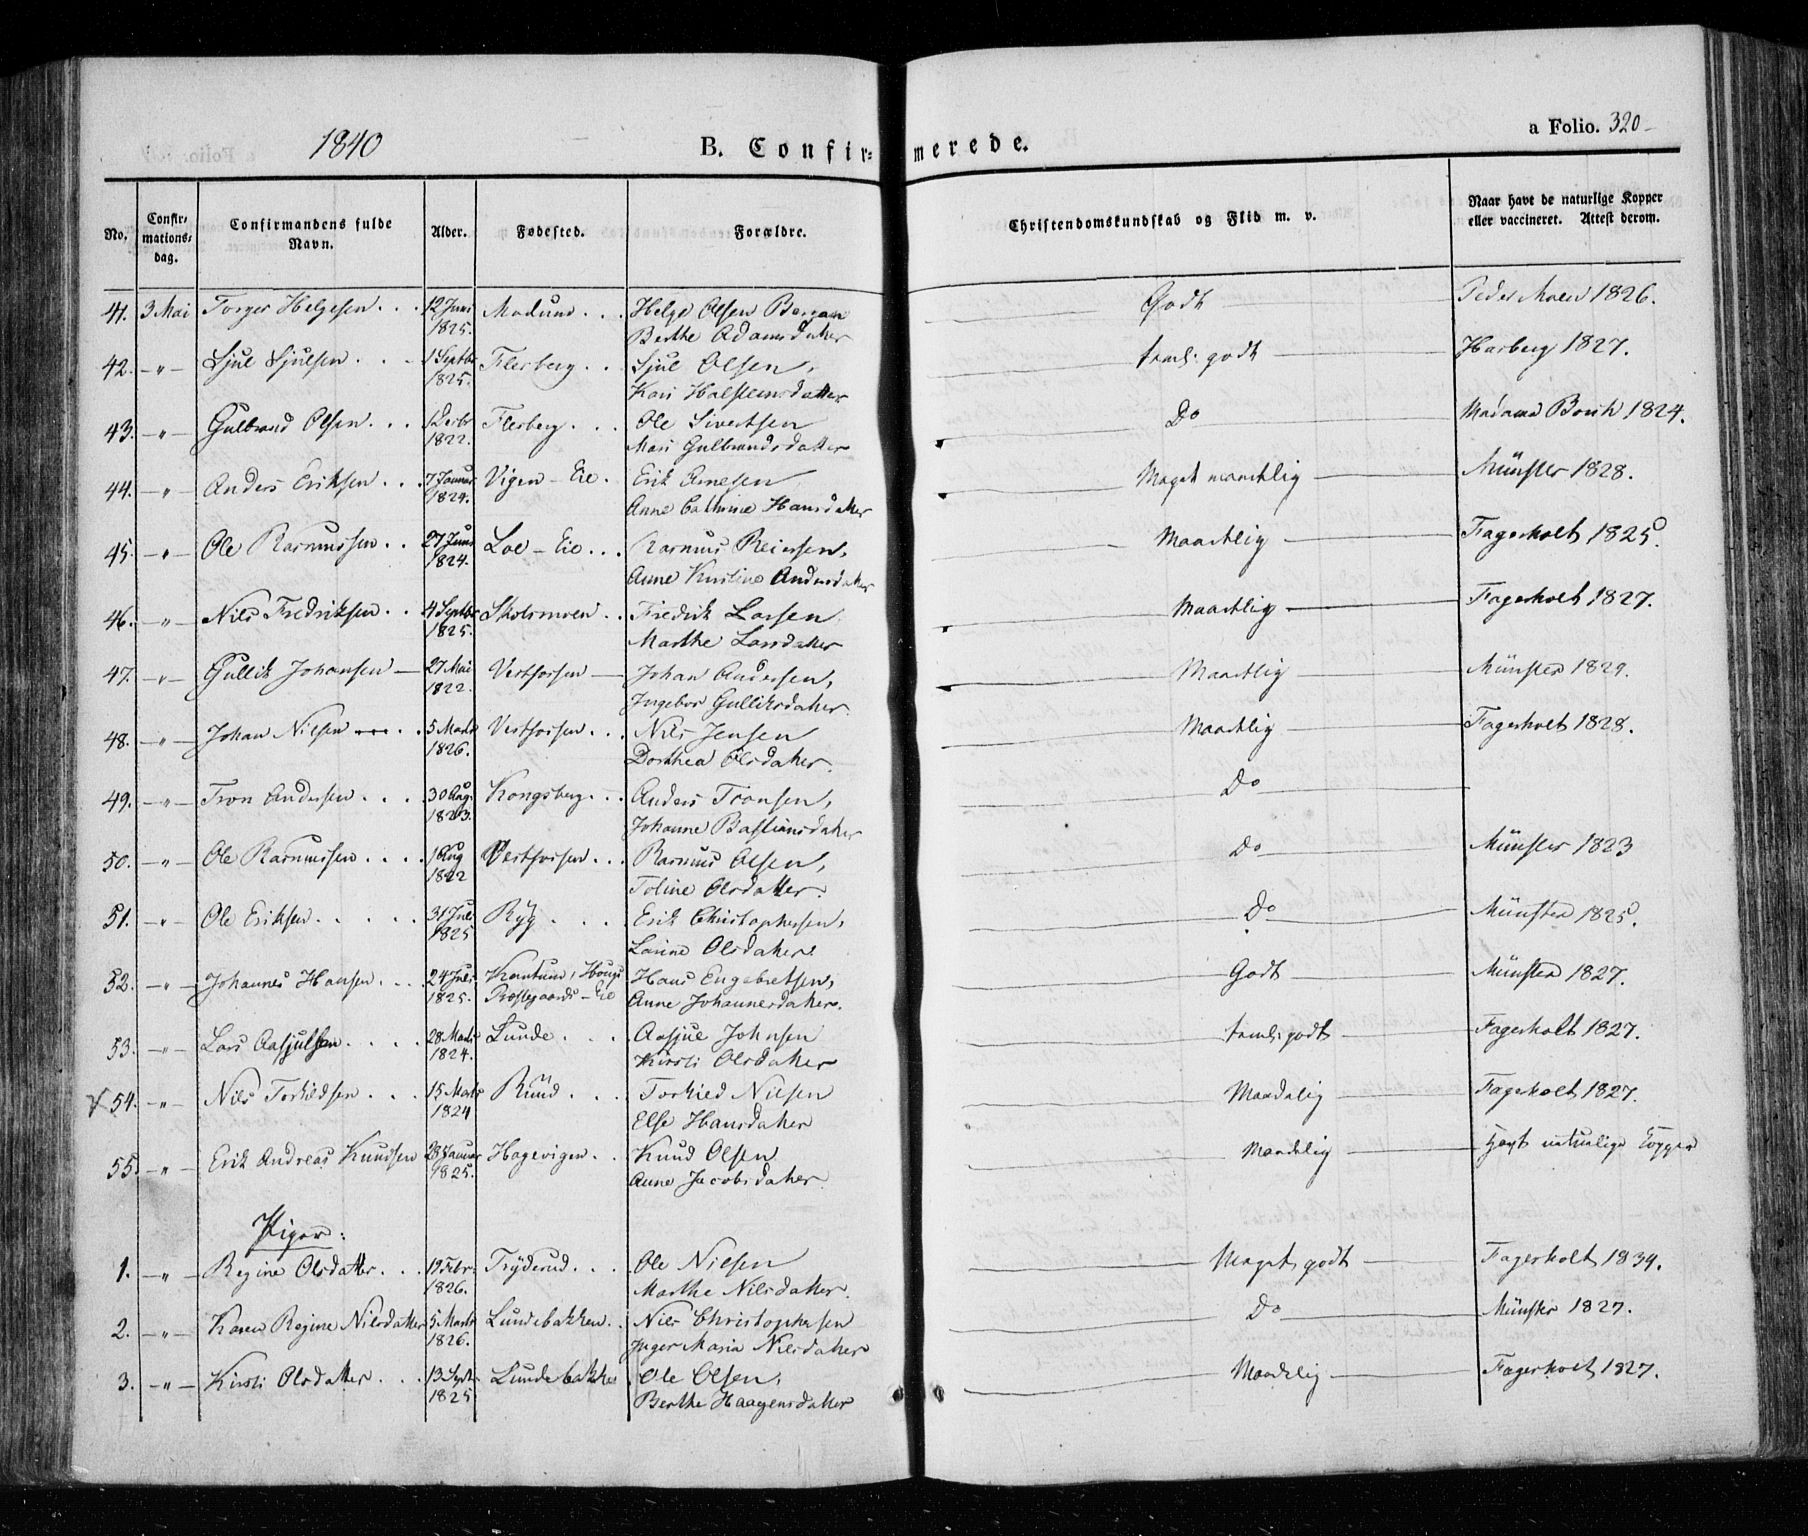 1840 B. Confirmerede. a Folio. 320
No. Confirmationsdag. Confirmandens fulde Navn. Alder. Fødested. Forældre. Christendomskundskab og Flid m. v. Naar havt de naturlige Kopper eller vaccineret. Attest derom.
41. 3 Mai Torger Helgesen . . . 12 Juni Modum . . . Helge Olsen Bergan Godt Peder Moen 1826.
1825. Berthe Adamsdatter
42. -"- Sjul Sjulsen . . . 1 Septbr Flesberg . . Sjul Olsen, temli: godt Harberg 1827.
1825. Kari Halsteinsdatter
43. -"- Gulbrand Olsen . . . 1 Decbr Flesberg . . . Ole Sivertsen Do Madame Bouh 1824.
1822. Mari Gulbrandsdatter
44. -"- Anders Eriksen . . . 7 Januar Vigen - Eie . Erik Arnesen Meget maadelig Münster 1828.
1824. Anne Cathrine Hansdatter
45. -"- Ole Rasmussen . . 27 Juni Loe - Eie . . . Rasmus Reiersen, Maadelig Fagerholt 1825.
1824. Anne Kirstine Andersdatter
46. -"- Nils Fredriksen . . 4 Septbr Skotsmoen . . Fredrik Larsen Maadelig Fagerholt 1827.
1825. Marthe Larsdatter
47. -"- Gullik Johansen - 27 Mai Vestfossen - Johan Andersen, Maadelig Münster 1829.
1822. Ingebor Gulliksdatter.
48. -"- Johan Nilsen . . . 5 Marts Vestfossen . . . Nils Jensen Maadelig Fagerholt 1828.
1826. Dorthea Olsdatter.
49. -"- Tron Andersen . . . . 30 Aug. Kongsberg . . . Anders Tronsen, Do
1823. Johanne Bastiansdatter
50. -"- Ole Rasmussen . . . . 1 Aug Vestfossen . . . Rasmus Olsen, Do Münster 1823
1822 Toline Olsdatter.
51. -"- Ole Eriksen . . . . . 31 Juli Ryg . . . . Erik Christophersen, Do Münster 1825.
1825 Larine Olsdatter.
52. -"- Johannes Hansen . . . . 24 Juli Hans Engebretsen, Godt Münster 1827.
1825. Præstegaards-Eie Anne Johannesdatter.
53. -"- Lars Aasjulsen . . . . 28 Marts Lunde . . . Aasjul Johnsen temli: godt Fagerholt 1827.
1824. Kirsti Olsdatter
54. -"- Nils Torkildsen . . . 15 Marts Ruud . . . . Torkied Nilsen Maadelig Fagerholt 1827.
1824 Else Hansdatter
55. -"- Erik Andreas Knudsen 28 Januar Hagevigen . . Knud Olsen Maadelig havt naturlige Kopper
1825. Anne Jacobsdatter
Piger:
1. -"- Regine Olsdatter . . . 19 Febr. Tryderud . . . Ole Nilsen Meget godt Fagerholt 1834.
1826. Marthe Nilsdatter.
2. -"- Karen Regine Nilsdatter 5 Marts Lundebakken . . Nils Christophersen Do Münster 1827.
1826. Inger Maria Nilsdatter
3. -"- Kirsti Olsdatter . . . 13 Septr Lundebakken Ole Olsen, Maadelig Fagerholt 1827.
1825 Berthe Haagensdatter